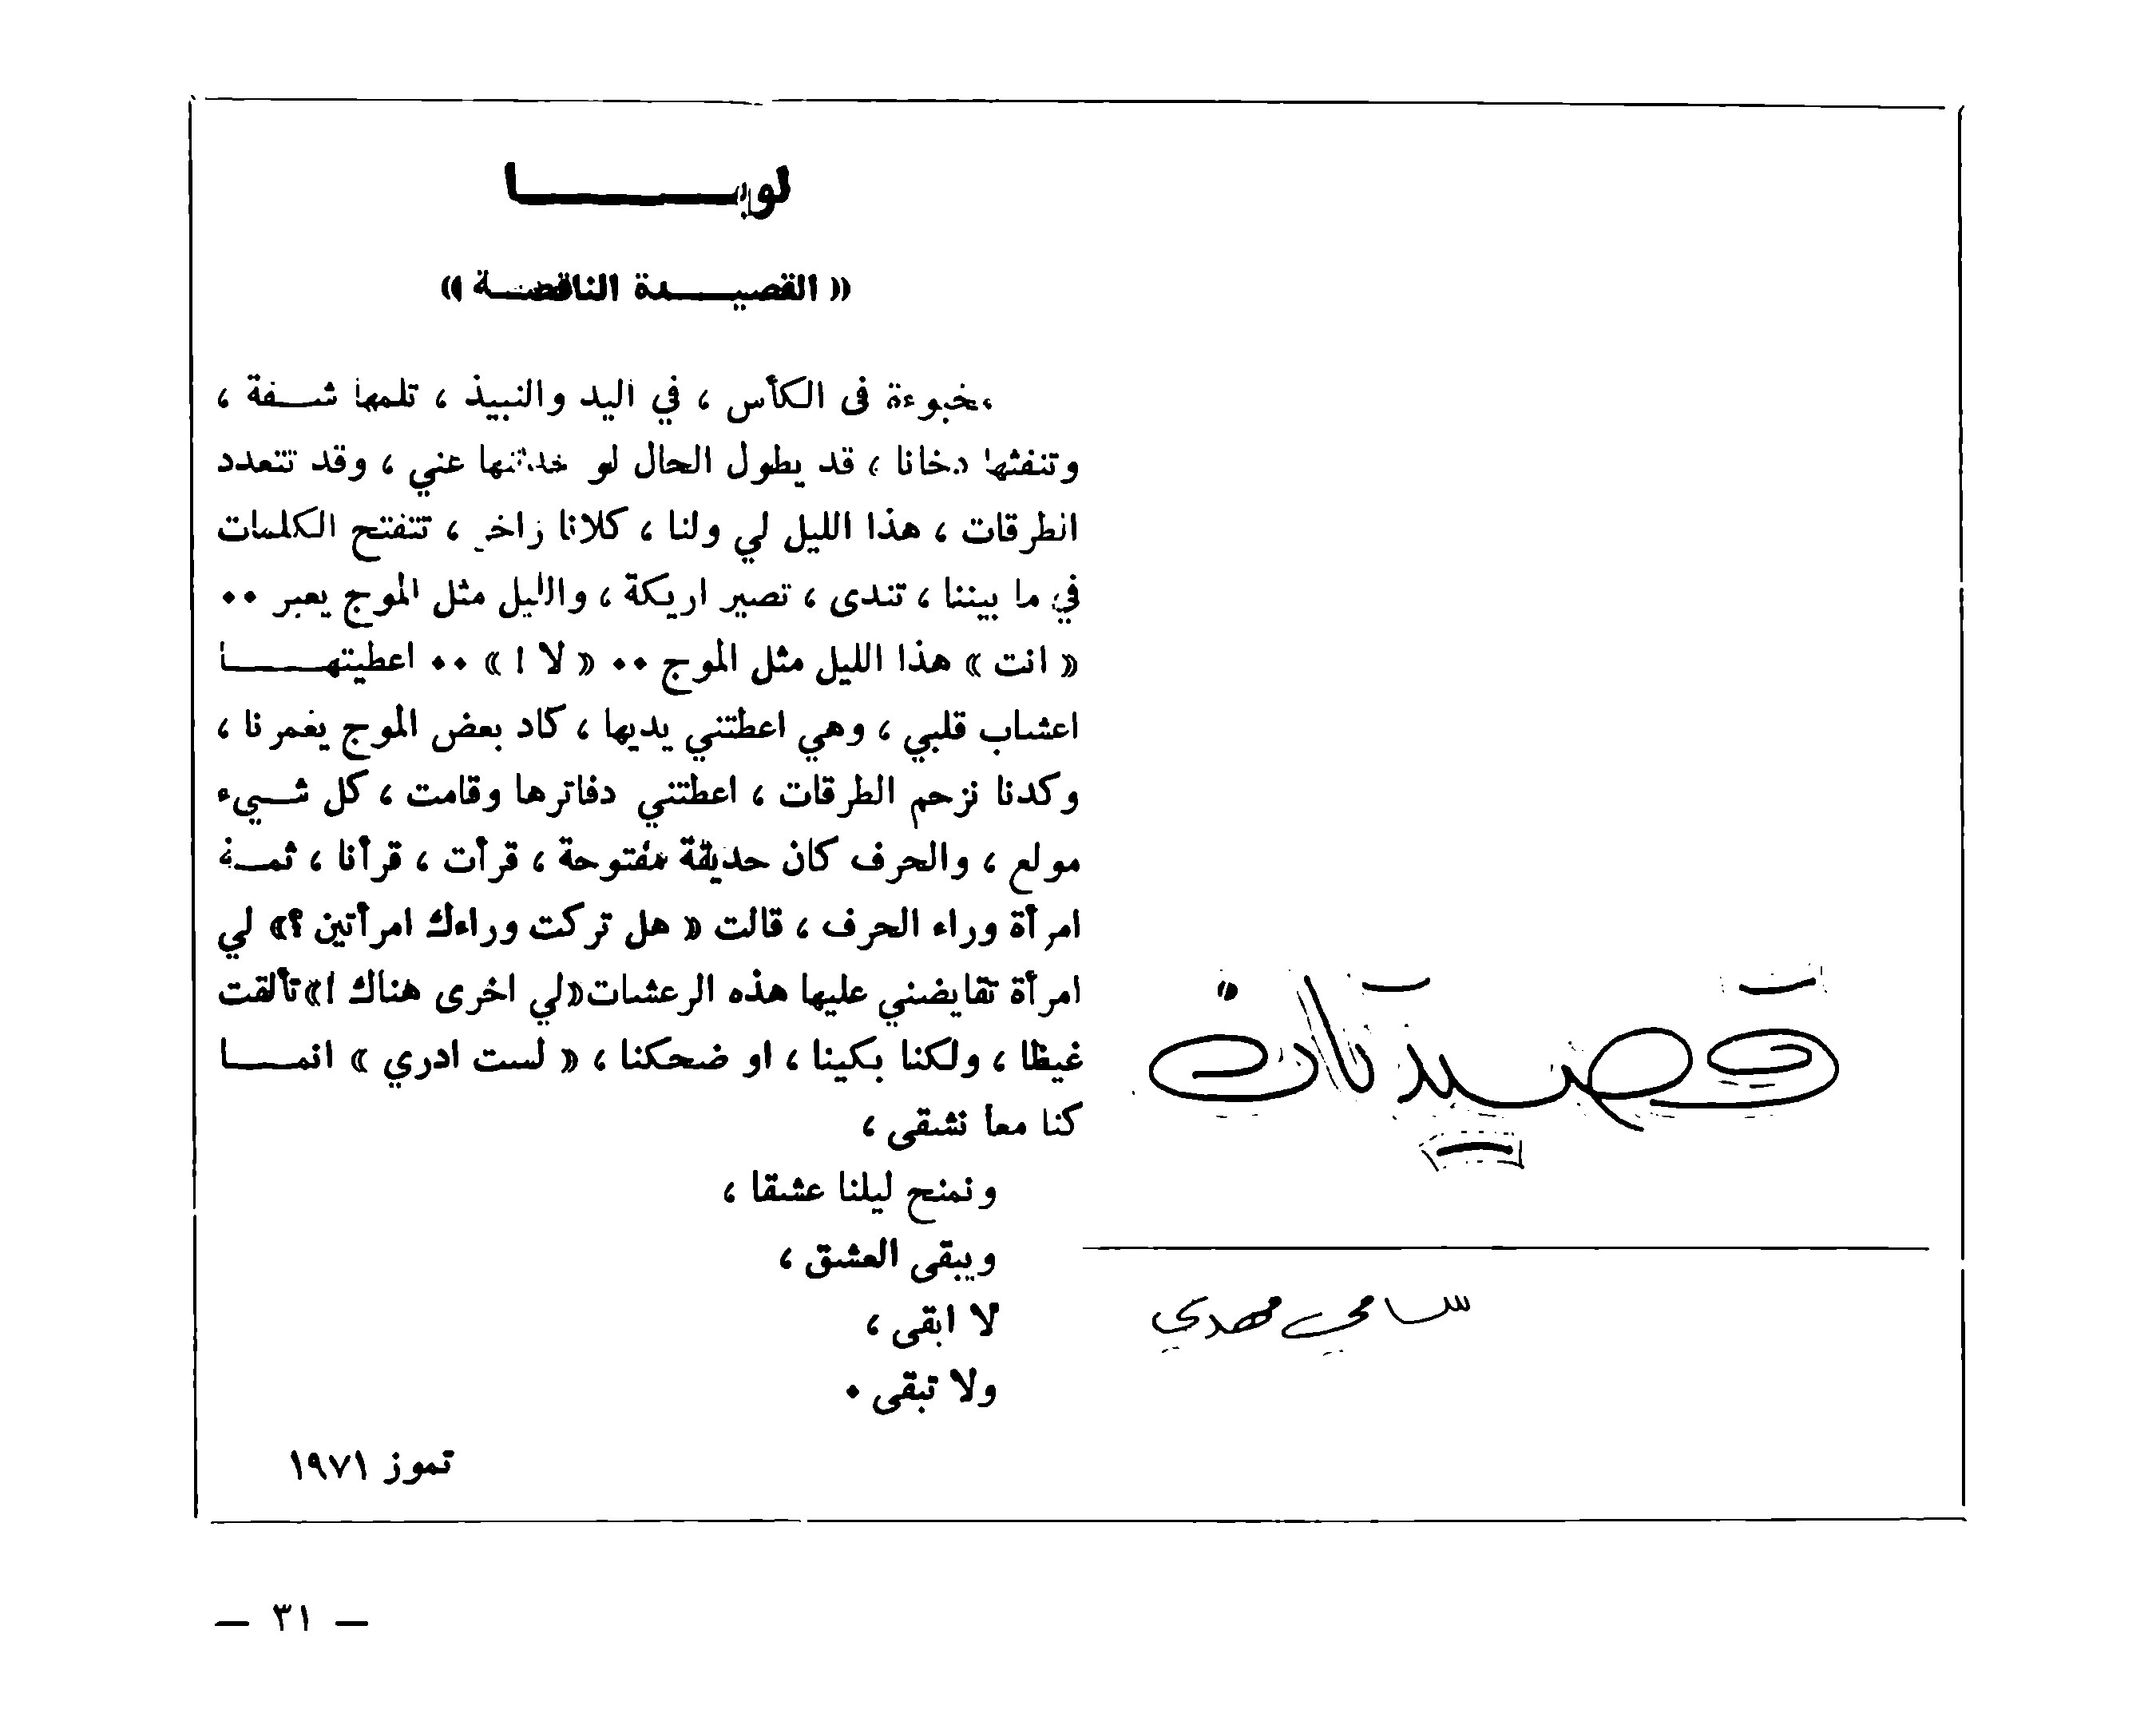 قصيدتان
سامي مهدي
لويا
« القصيدة الناقصة »
مخبوءة في الكأس ، في اليد والنبيذ ، تلمها شفة ،
وتنفثها دخانا ، قد يطول الحال لو عني ، وقد تتعدد
الطرقات ، هذا الليل لي ولنا ، كلانا زاخر ، تتفتح الكلمات
في ما بيننا ، تندى ، تصير اريكة ، والليل مثل الموج يعبر ..
« انت » هذا الليل مثل الموج .. « لا ! » .. اعطيتها
اعشاب قلبي ، وهي اعطتني يديها ، كاد بعض الموج يغمرنا ،
وكدنا نزحم الطرقات ، اعطتني دفاترها وقامت ، كل شيء
مولع ، والحرف كان حديقة مفتوحة ، قرأت ، قرأنا ، ثمة
امرأة وراء الحرف ، قالت « هل تركت وراءك امرأتين ؟» لي
امرأة تقايضني عليها هذه الرعشات«لي اخرى هناك !»تألقت
غيظا ، ولكنا بكينا ، او ضحكنا ، « لست ادري » انما
كنا معا نشقى ،
ونمنح ليلنا عشقا ،
ويبقى العشق ،
لا ابقى ،
ولا تبقى .
تموز ١٩٧١
— ٣١ —